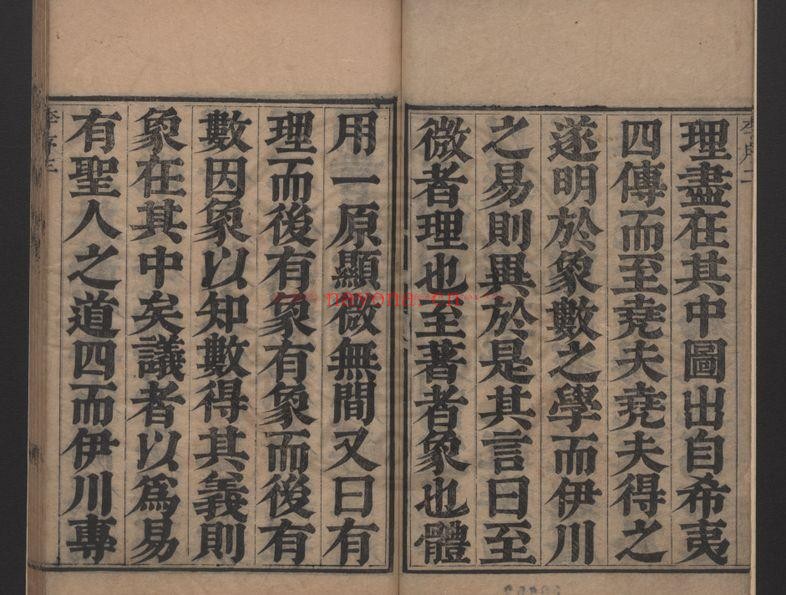 理盡在其中圖出自希夷
四傳而至堯夫堯夫得之
遂明於象數之學而伊川
之易則異於是其言曰至
微者理也至著者象也體
用一原顯微無間又曰有
理而後有象有象而後有
數因象以知數得其義則
象在其中矣議者以爲易
有聖人之道四而伊川專